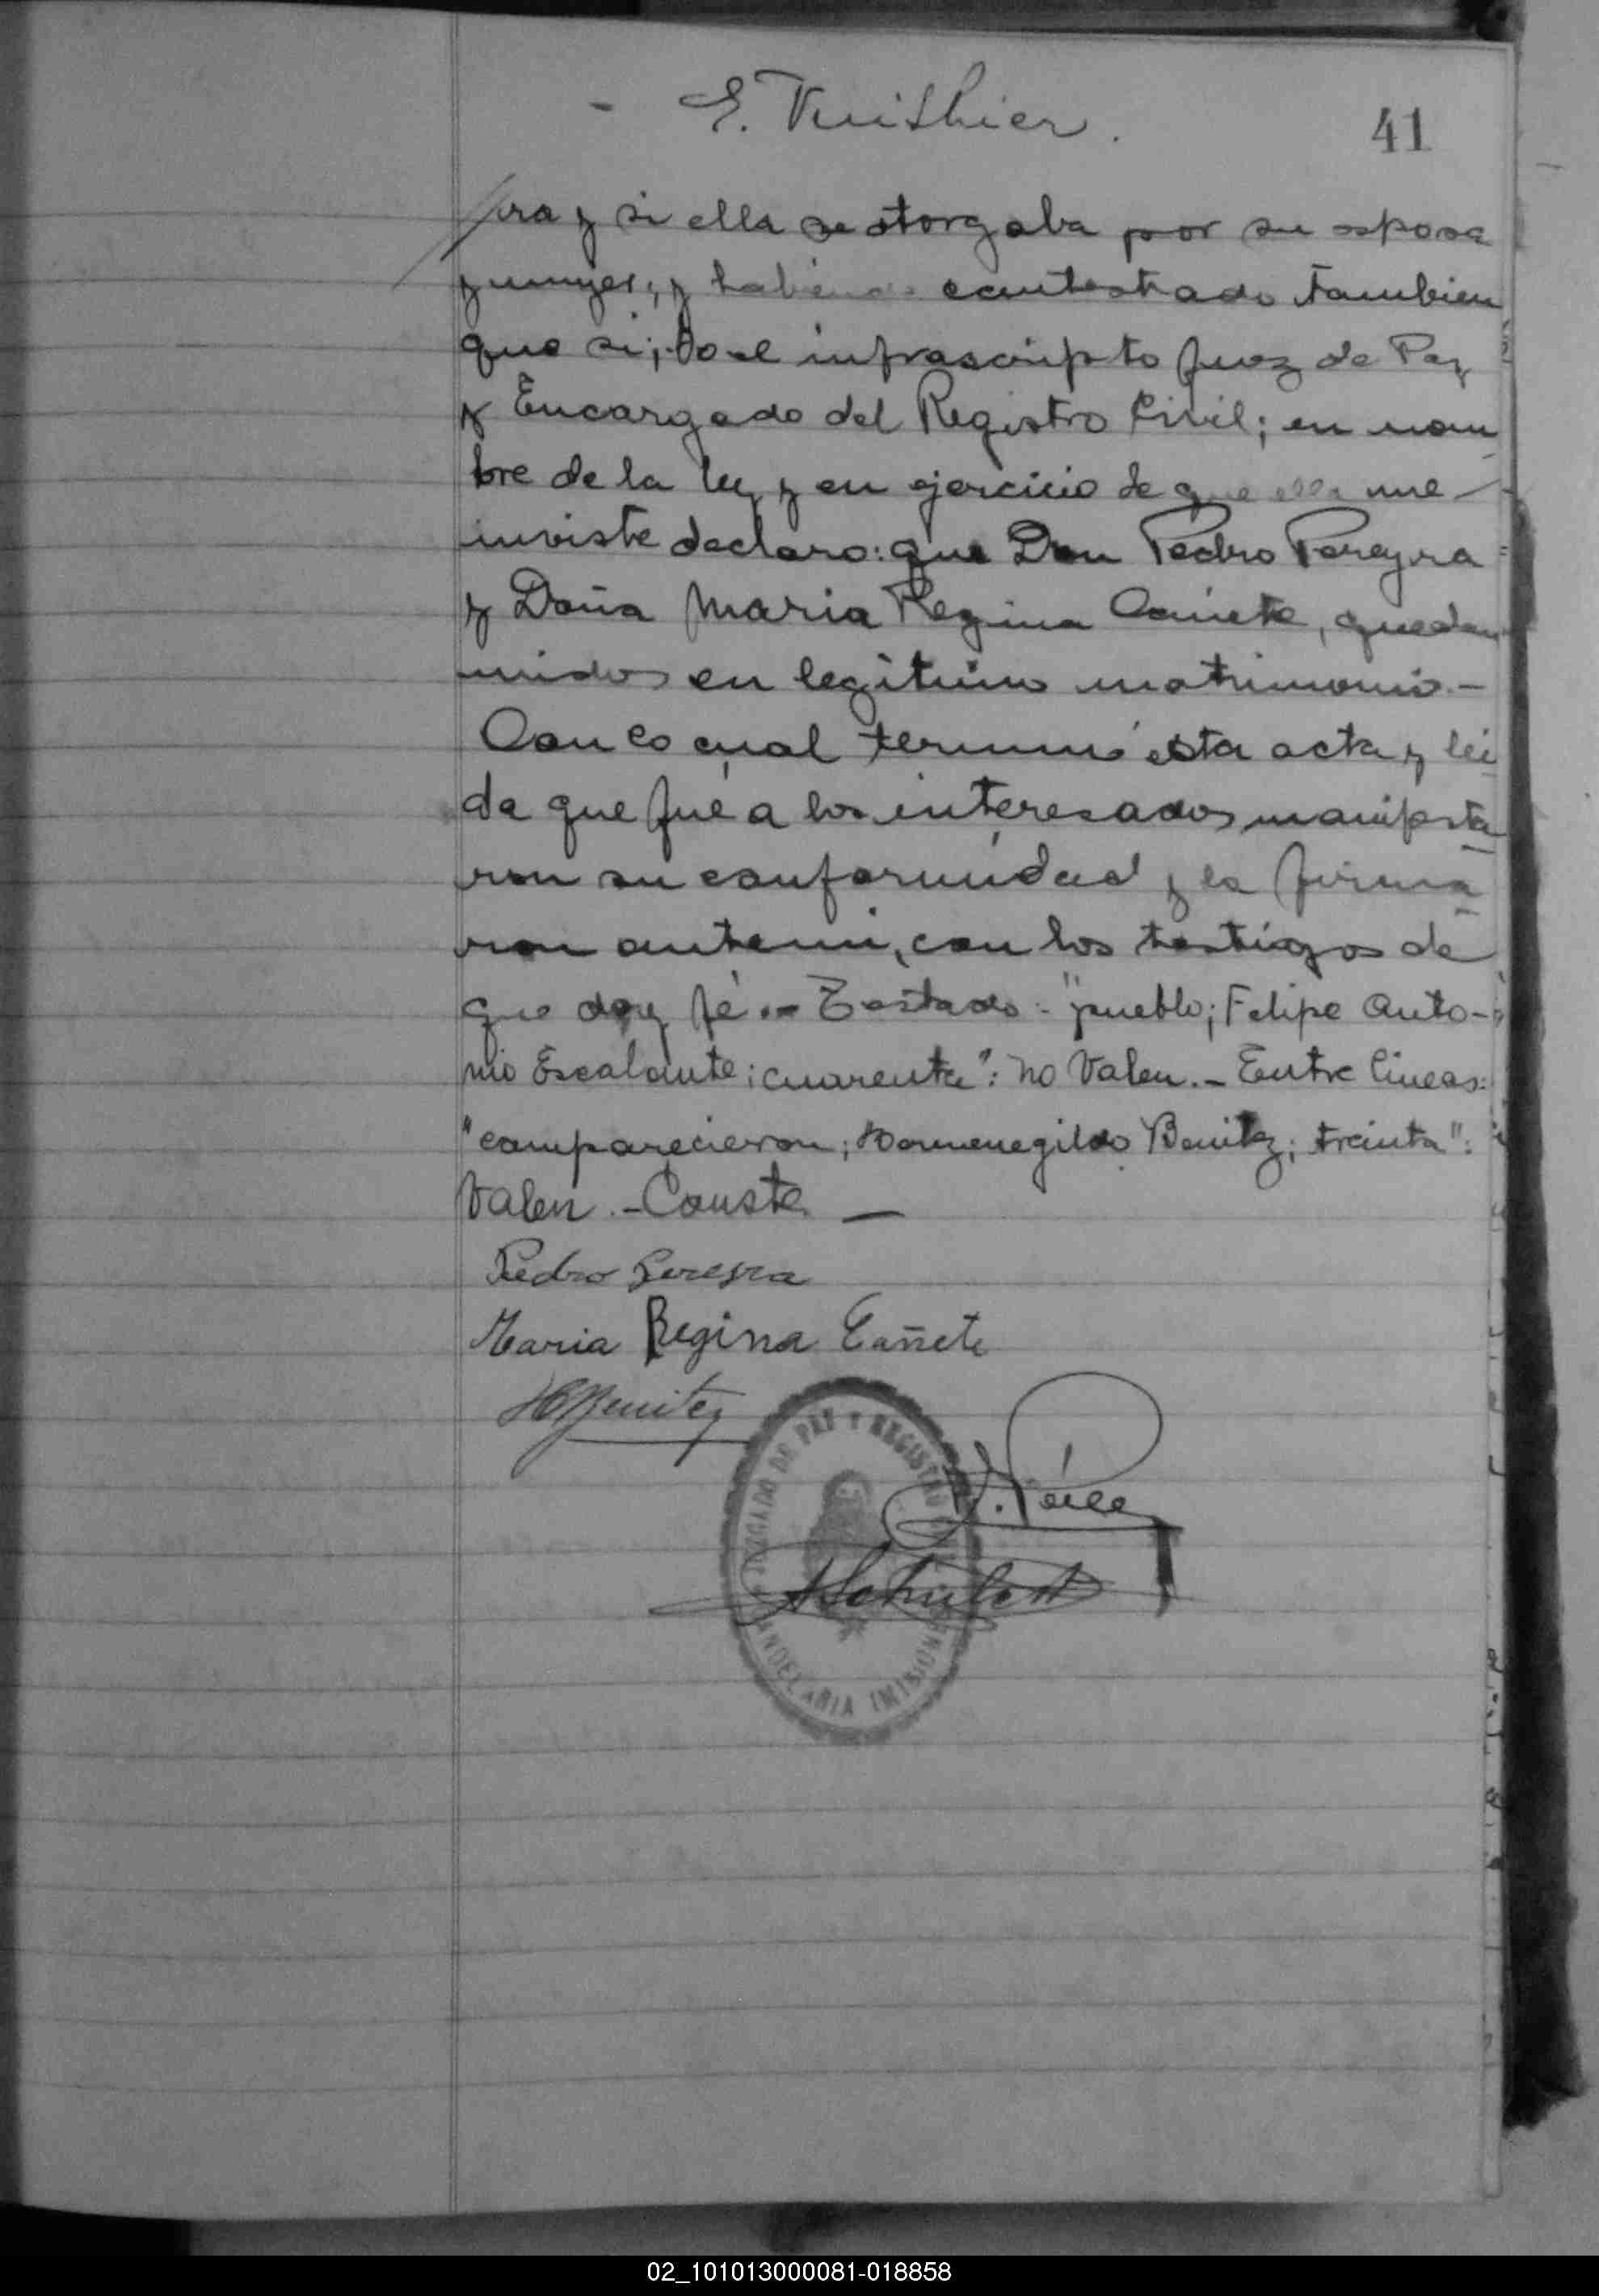 - E. Vuithier.
41
yra y si ella se otorgaba por su esposa
y mujer; y habiendo contestado tambien
que si; Yo el infrascripto Juez de Paz
y Encargado del Registro Civil; en nom
bre de la ley y en ejercicio de que ella me
inviste declaro: que Don Pedro Pereyra
y Doña Maria Regina Cañete, quedan
unidos en legitimo matrimonio.-
Con lo cual terminó esta acta y lei
da que fué a los interesados manifesta
ron su conformidad y la firma
ron ante mi, con los testigos de
que doy fé.- Testado: "pueblo; Felipe Anto-
nio Escalante; cuarenta": no Valen.- Entre lineas:
"comparecieron; Hermenegildo Benitez; treinta":
Valen.- Conste. —
Pedro Pereyra
Maria Regina Cañete
H Benitez
JUZGADO DE PAZ Y REGISTRO
CANDELARIA (MISIONES